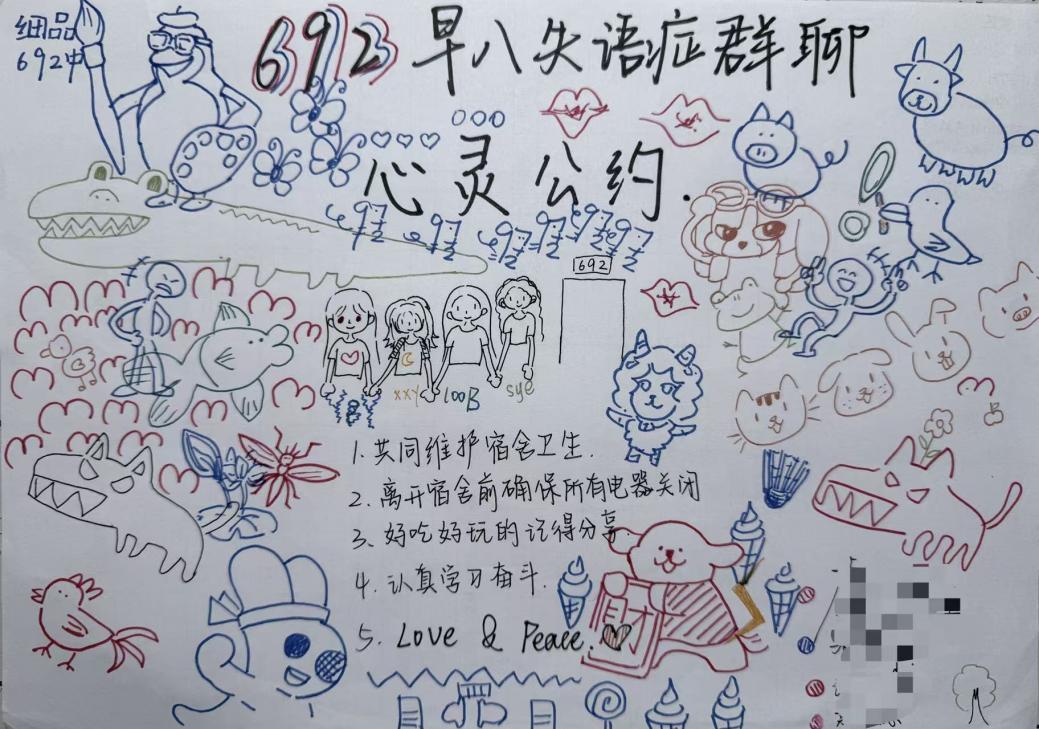 细品
692中
692 早八失语症群聊
心灵公约.
692
xxy 100B sye
1. 共同维护宿舍卫生.
2. 离开宿舍前确保所有电器关闭
3、好吃好玩的记得分享.
4. 认真学习奋斗.
5. Love & Peace.
财